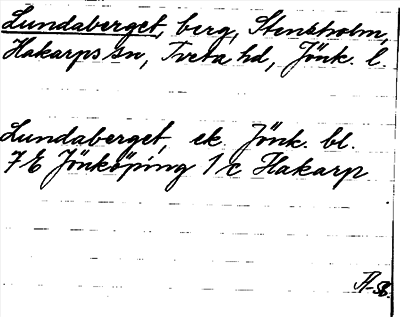 Lundaberget, berg, Stensholm,
Hakarps sn, Tveta hd, Jönk. l.
Lundaberget, ek. Jönk. bl.
7E Jönköping 1c Hakarp